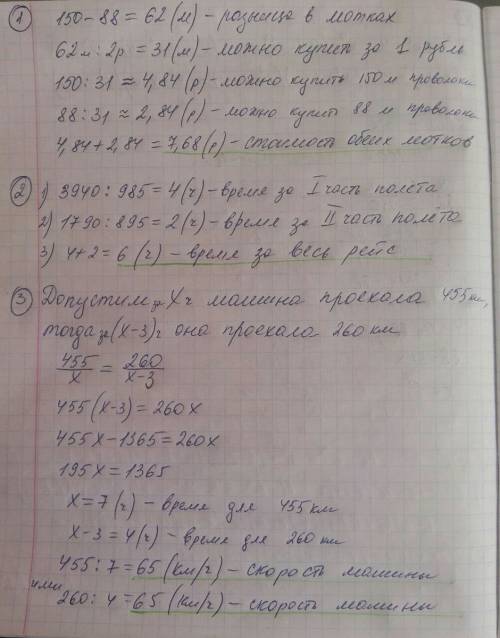 ① 150-88=62(м)-розница в мотках
62м:2р=31(м)-можно купить за 1 рубль
150:31≈4,84(р)-можно купить 150м проволоки
88:31≈2,84(р)-можно купить 88 м проволоки
4,84+2,84=7,68(р)-стоимость обеих мотков
② 1) 3940:985=4(ч)-время за I часть полёта
2) 1790:895=2(ч)-время за II часть полёта
3) 4+2=6(ч)-время за весь рейс
③ Допустим за Xч машина проехала 455км,
тогда за (X-3)ч она проехала 260 км
455/x = 260/x-3
455(x-3)=260x
455x-1365=260x
195x=1365
x=7(ч)-время для 455км
x-3=4(ч)-время для 260 км
455:7=65(км/ч)-скорость машины
или
260:4=65(км/ч)-скорость машины